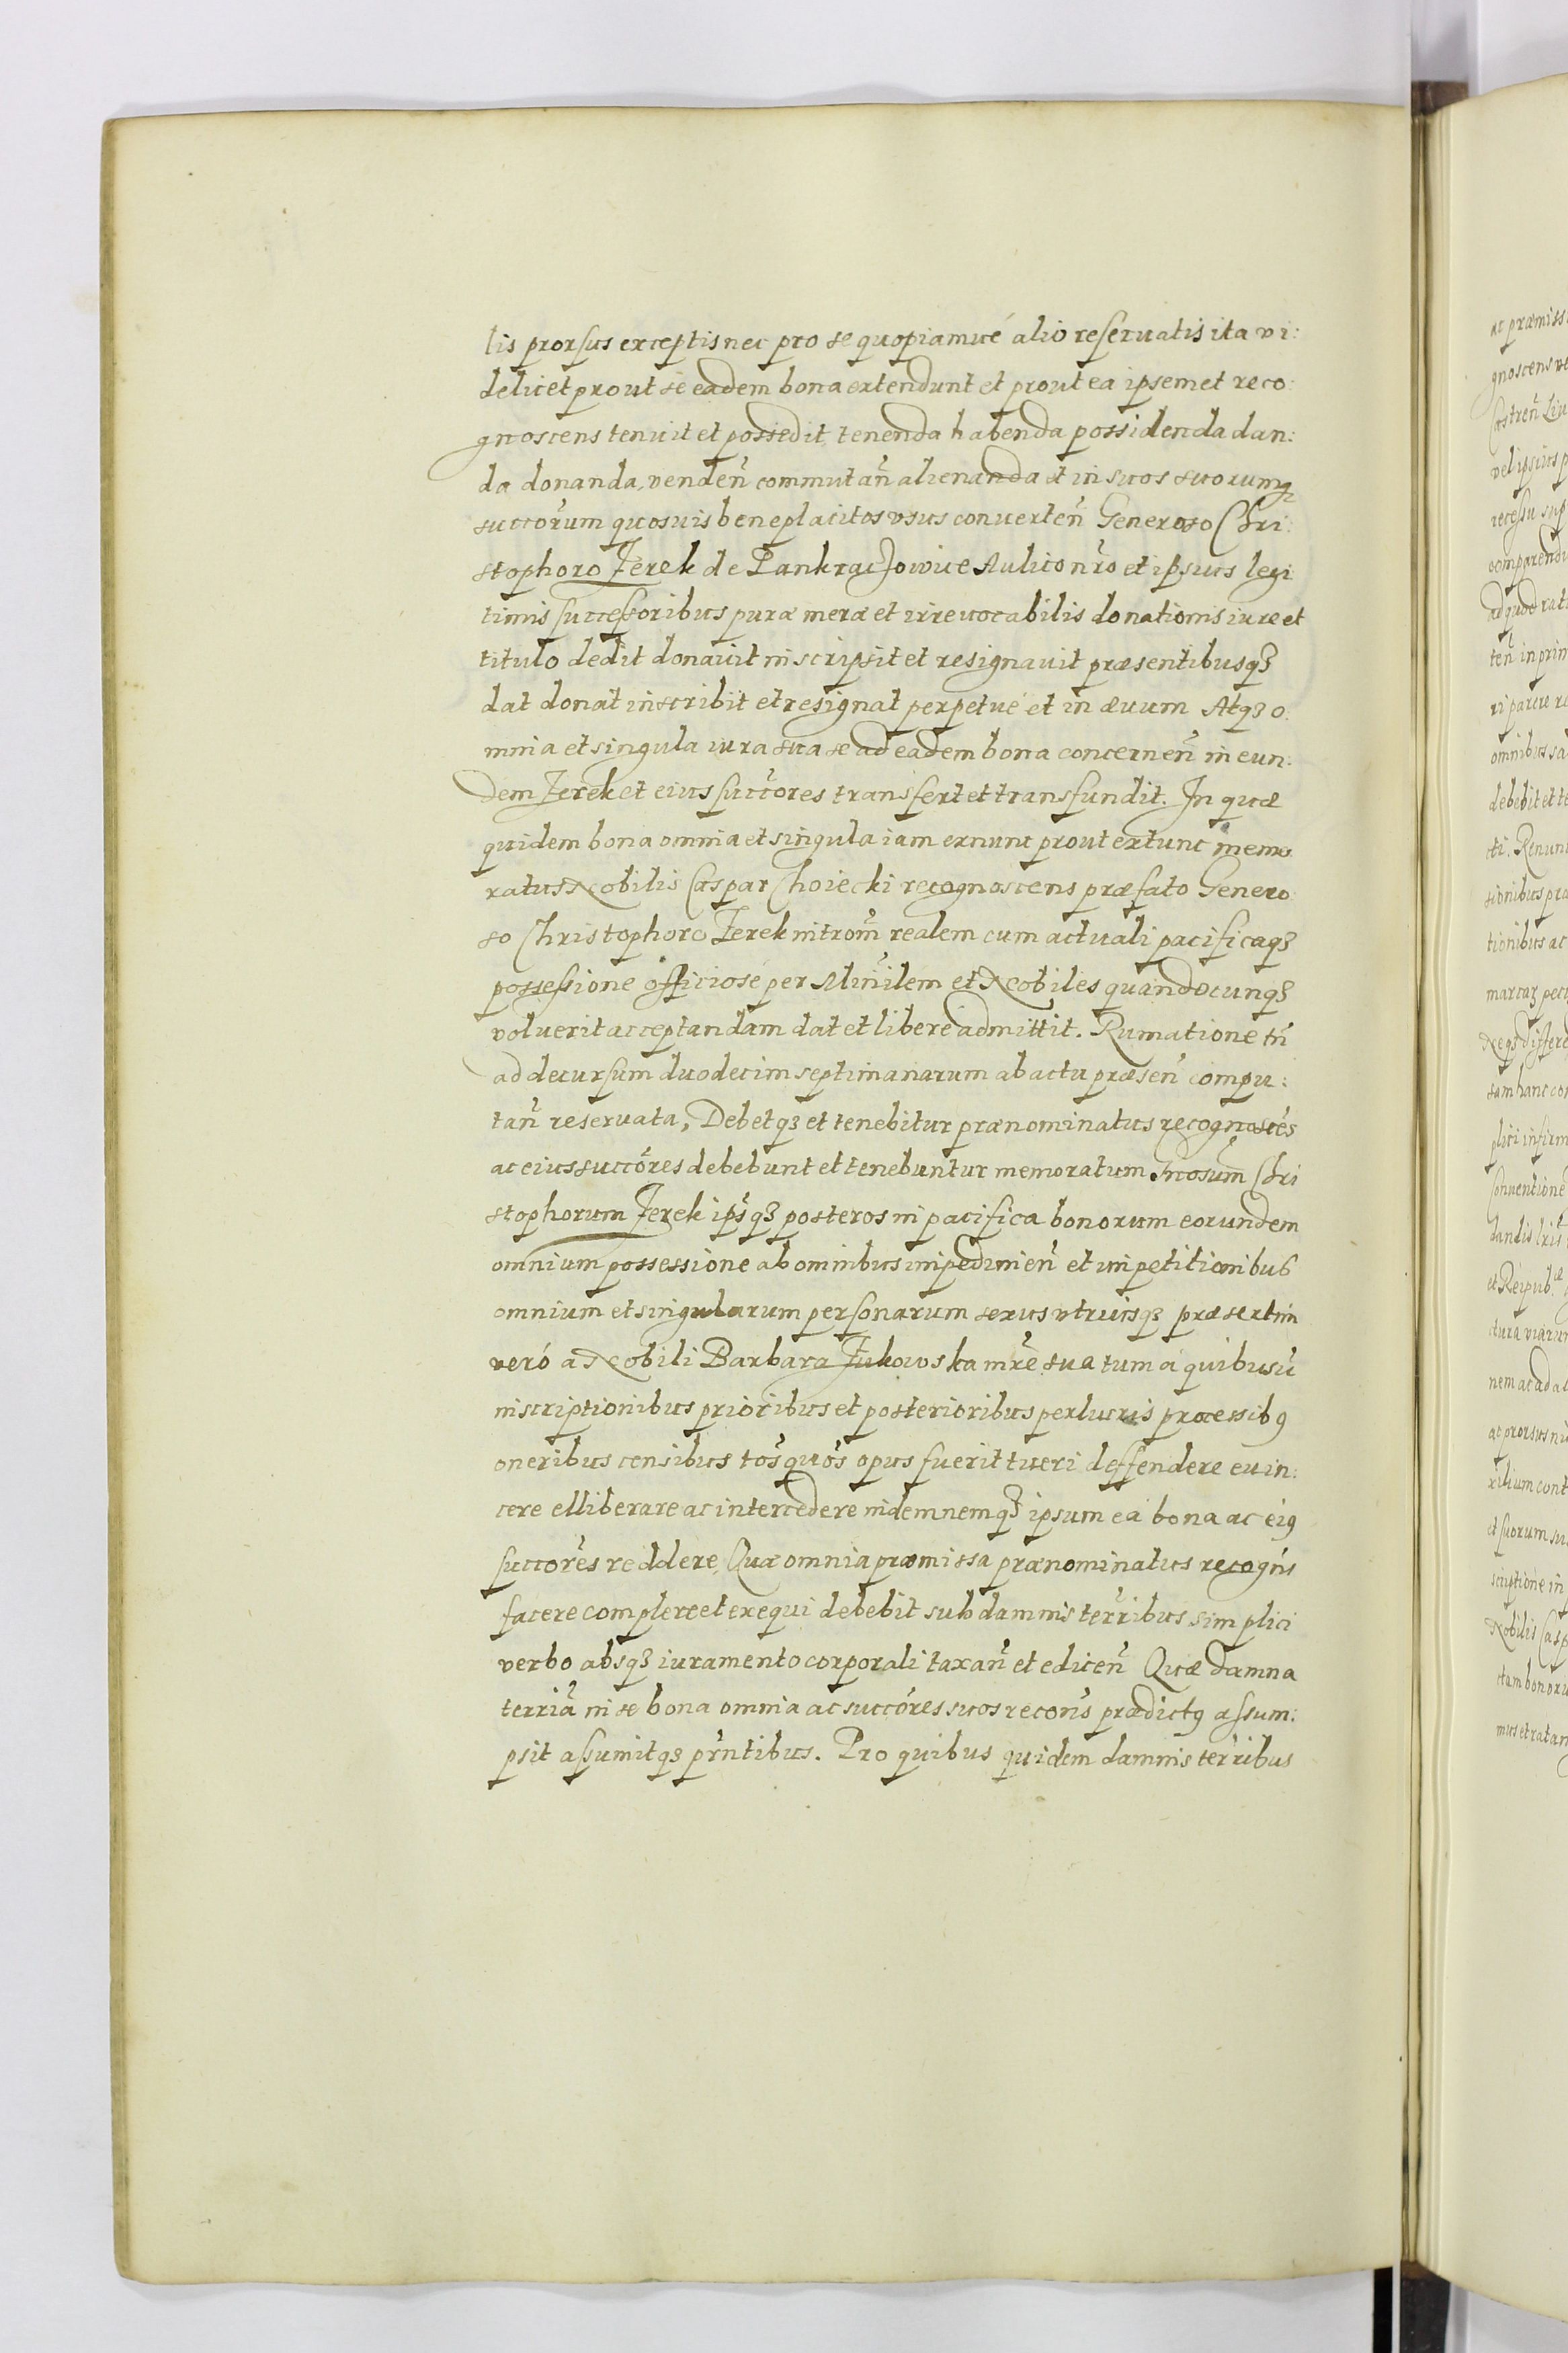 lis prorsus exceptis nec pro se quopiamue alio reseruatis ita vi:
delicet prout se eadem bona extendunt et prout ea ipsemet reco:
gnoscens tenuit et possedit, tenenda habenda possidenda dan:
da donanda, venden̄ commutan̄ alienanda et in suos suorumq₃
succōrum quosuis beneplacitos vsus conuerten̄ Generoso Chri:
stophoro Jerek de PankracJowice Aulico nr̄o et ipsius legi
timis successoribus puræ meræ et irreuocabilis donationis iure et
titulo dedit donauit inscripsit et resignauit præsentibusq₃
dat donat inscribit et resignat perpetue et in æuum Atq₃ o:
mnia et singula iura sua se ad eadem bona concernen̄ in eun:
dem Jerek et eius succōres transfert et transfundit. In quæ
quidem bona omnia et singula iam exnunc prout extunc memo
ratus Nobilis Caspar Choiecki recognoscens præfato Genero
so Christophoro Jerek introm̄ realem cum actuali pacificaq₃
possessione officiosé per Min̄ilem et Nobiles quandocunq₃
voluerit acceptandam dat et libere admittit. Rumatione tn̄
ad decursum duodecim septimanarum ab actu præsen̄ compu:
tan̄ reseruata, Debetq₃ et tenebitur prænominatus recognoscēs
ac eius succōres debebunt et tenebuntur memoratum Gn̄osum Chri
stophorum Jerek ipsq₃ posteros in pacifica bonorum eorundem
omnium possessione ab omnibus impedimen̄ et impetitionibus
omnium et singularum personarum sexus vtriusq₃ præsertim
veró a Nobili Barbara Jukowska mr̄e sua tum a quibusu̇
inscriptionibus prioribus et posterioribus perlucris processib9
oneribus censibus tōs quōs opus fuerit tueri deffendere euin:
cere elliberare ac intercedere indemnemq₃ ipsum ea bona ac ei9
succōres reddere, Quæ omnia præmissa prænominatus recogn̄s
facere complere et exequi debebit sub damnis terr̄ibus simplici
verbo absq₃ iuramento corporali taxan̄ et edicen̄ Quæ damna
terriā in se bona omnia ac succōres suos recon̄s prædict9 assum:
psit assumitq₃ pr̄ntibus. Pro quibus quidem damnis terr̄ibus